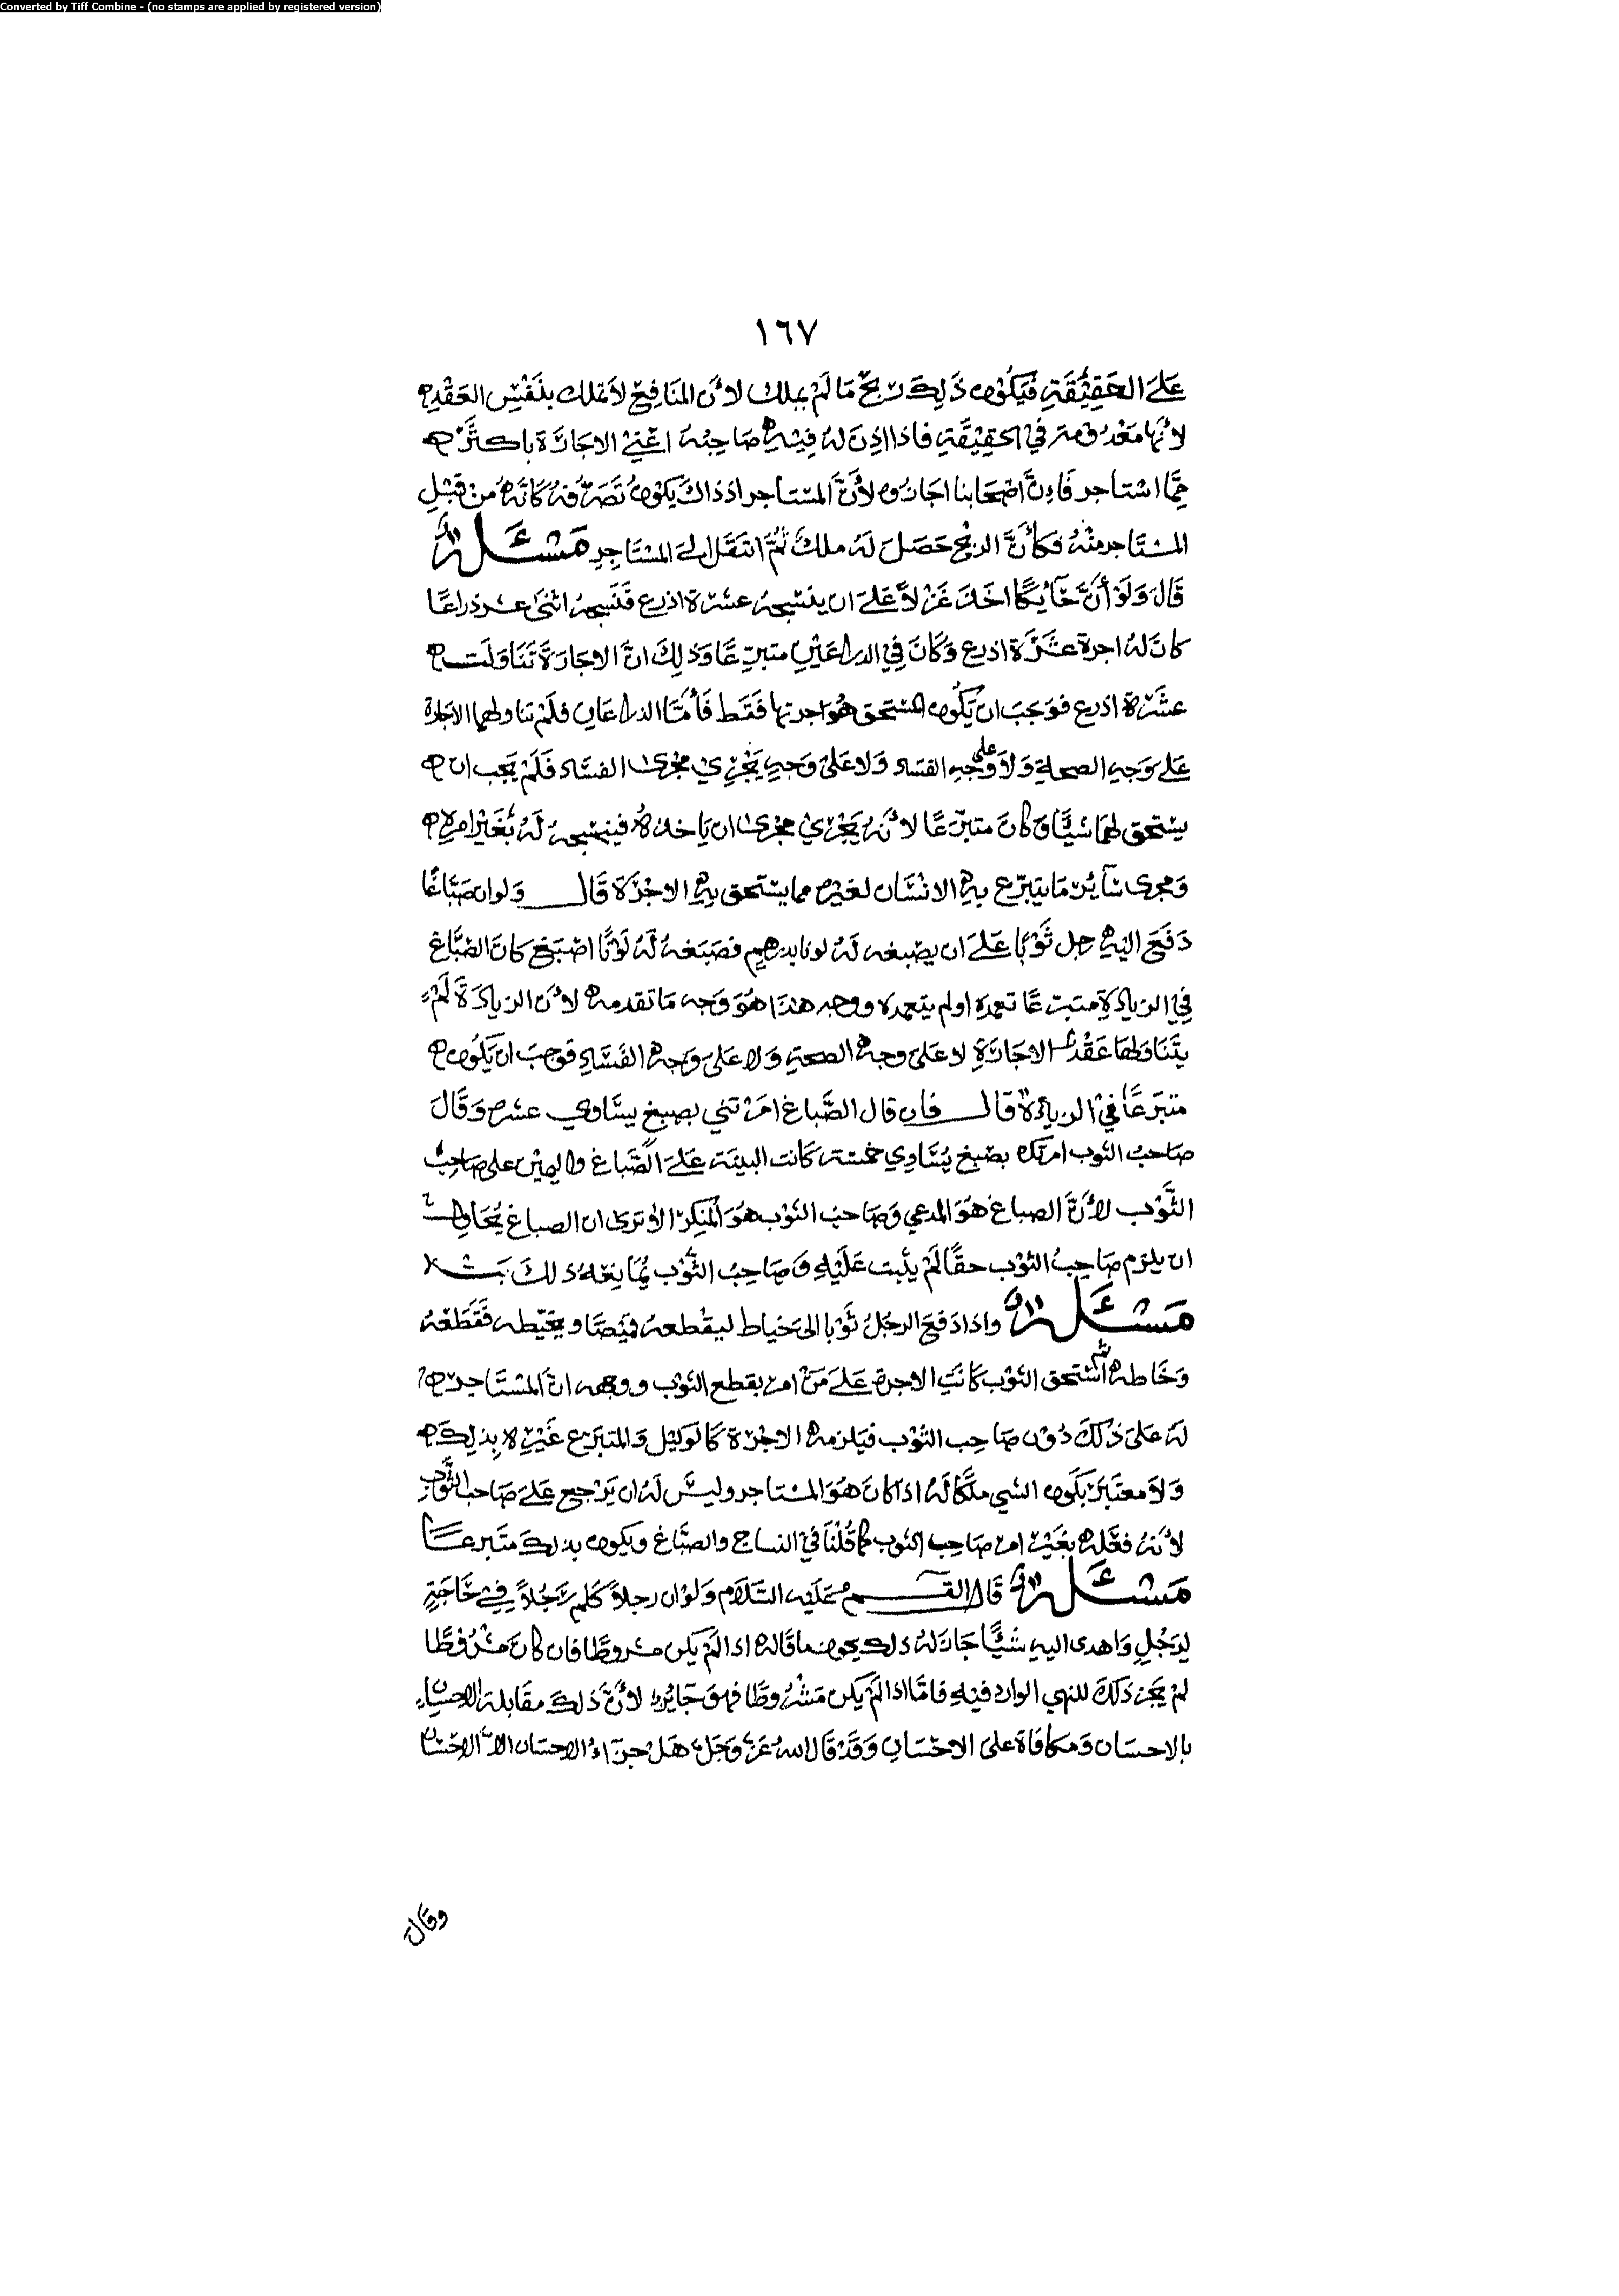 Converted by Tiff Combine - (no stamps are applied by registered version)
١٦٧
على الحقيقة فيكون ذلك ربح ما لم يملك لأن المنافع لا تملك بنفس العقد
لأنها معدومة في الحقيقة فاذا اذن له فيه صاحبه اعني الاجارة باكثر
مما استاجر فإن اصحابنا اجازوه لأن المستاجر اذ ذاك يكون تصرفه كانه من قبل
المستاجر منه فكأن الربح حصل له ملك ثم انتقل الى المستاجر مسئلة
قال ولو أن حائكا اخذ غزلا على ان ينسجه عشرة اذرع فنسجه اثنى عشر ذراعا
كان له اجرة عشرة اذرع وكان في الذراعين متبرعا وذلك ان الاجارة تناولت
عشرة اذرع فوجب ان يكون المستحق هو اجرتها فقط فأما الذراعان فلم تناولهما الاجارة
على وجه الصحة ولا على وجه الفساد ولا على وجه يجري مجرى الفساد فلم يجب ان
يستحق لهما شيئا وكان متبرعا لأنه يجري مجرى ان ياخذه فينسجه له بغير امره
ومجرى سائر ما يتبرع به الانسان لغيره مما يستحق به الاجرة قال ولو ان صباغا
دفع اليه رجل ثوبا على ان يصبغه له لونا بدرهم فصبغه له لونا اصبغ كان الصباغ
في الزيادة متبرعا تعمده او لم يتعمده ووجه هذا هو وجه ما تقدمه لأن الزيادة لم
يتناولها عقد الاجارة لا على وجه الصحة ولا على وجه الفساد فوجب ان يكون
متبرعا في الزيادة قال فان قال الصباغ امرتني بصبغ يساوي عشرة وقال
صاحب الثوب امرتك بصبغ يساوي خمسة كانت البينة على الصباغ واليمين على صاحب
الثوب لأن الصباغ هو المدعي وصاحب الثوب هو المنكر الا ترى ان الصباغ يحاول
ان يلزم صاحب الثوب حقا لم يثبت عليه وصاحب الثوب يمانعه ذلك
مسئلة واذا دفع الرجل ثوبا الى خياط ليقطعه قميصا ويخيطه فقطعه
وخاطه ثم استحق الثوب كانت الاجرة على من امر بقطع الثوب ووجهه ان المستاجر
له على ذلك دون صاحب الثوب فيلزمه الاجرة كالوكيل والمتبرع غيره بذلك
ولا معتبر بكون الشي ملكا له اذا كان هو المستاجر وليس له ان يرجع على صاحب الثوب
لأنه فعله بغير امر صاحب الثوب كما قلنا في النساج والصباغ ويكون بذلك متبرعا
مسئلة قال القسم عليه السلام ولو ان رجلا كلم رجلا في حاجة
لرجل واهدى اليه شيئا جاز له ذلك ما قاله اذا لم يكن مشروطا فان كان مشروطا
لم يجز ذلك للنهي الوارد فيه فامّا اذا لم يكن مشروطا فهو جائز لأن ذلك مقابلة الاحسان
بالاحسان ومكافاة على الاحسان وقد قال الله عز وجل هل جزاء الاحسان الا الاحسان
وقال